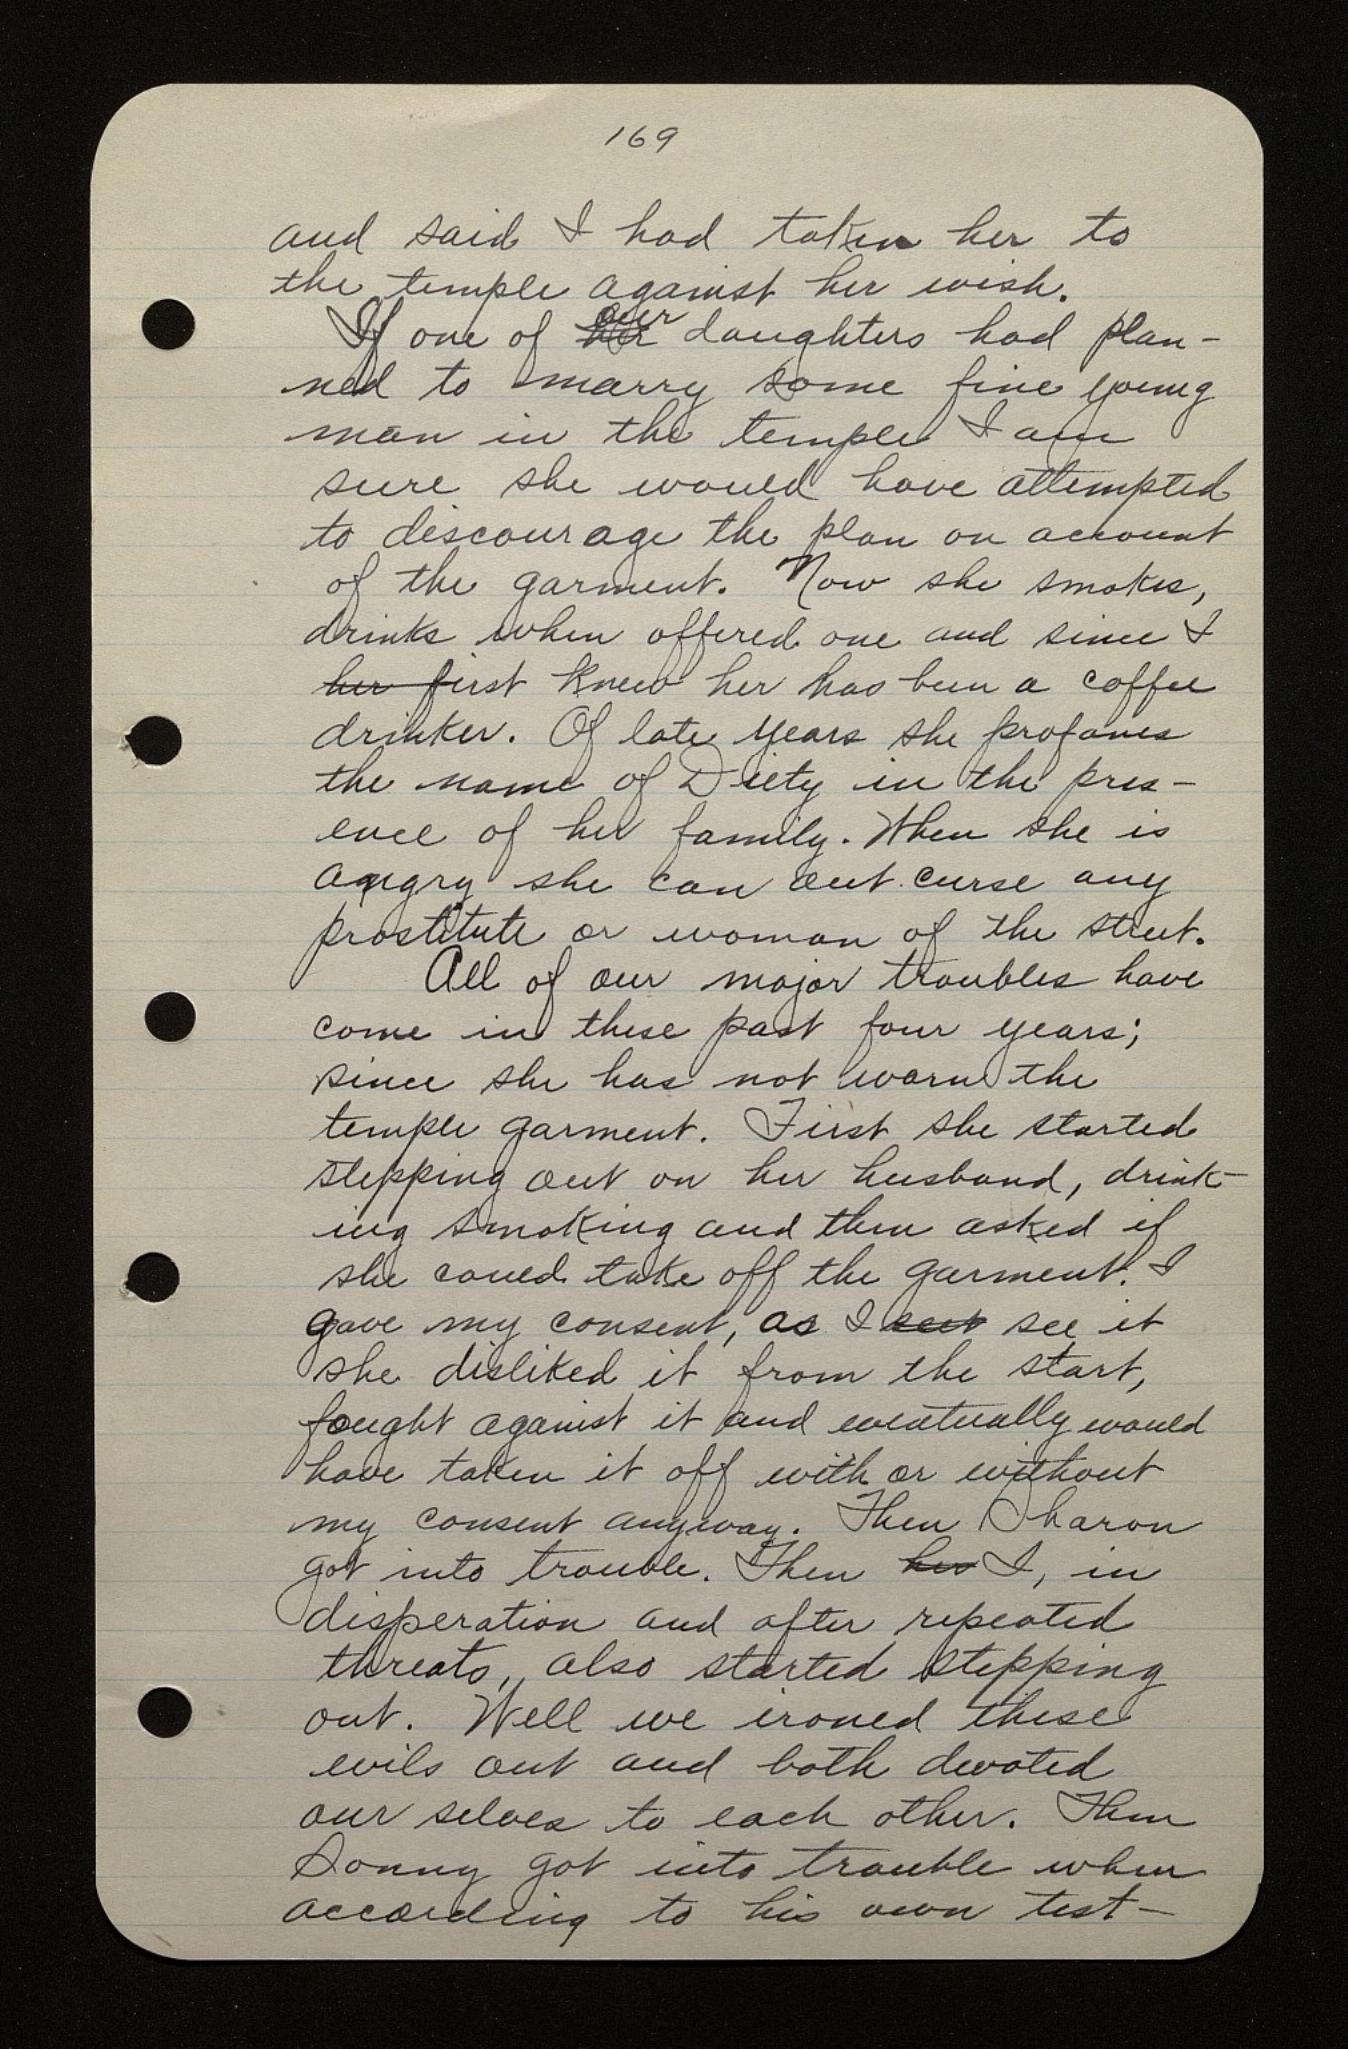 169
and said I had taken her to
the temple against her wish.
If one of ~~her~~ our daughters had plan-
ned to marry some fine young
man in the temple I am
sure she would have attempted
to discourage the plan on account
of the garment. Now she smokes,
drinks when offered one and since I
~~her~~ first knew her has been a coffee
drinker. Of late years she profanes
the name of Diety in the pres-
ence of her family. When she is
angry she can out curse any
prostitute or woman of the street.
All of our major troubles have
come in these past four years;
since she has not worn the
temple garment. First she started
stepping out on her husband, drink-
ing smoking and then asked if
she could take off the garment. I
gave my consent, as I ~~seet~~ see it
she disliked it from the start,
fought against it and eventually would
have taken it off with or without
my consent anyway. Then Sharon
got into trouble. Then ~~her~~ I, in
disperation and after repeated
threats, also started stepping
out. Well we ironed these
evils out and both devoted
our selves to each other. Then
Sonny got into trouble when
according to his own test-